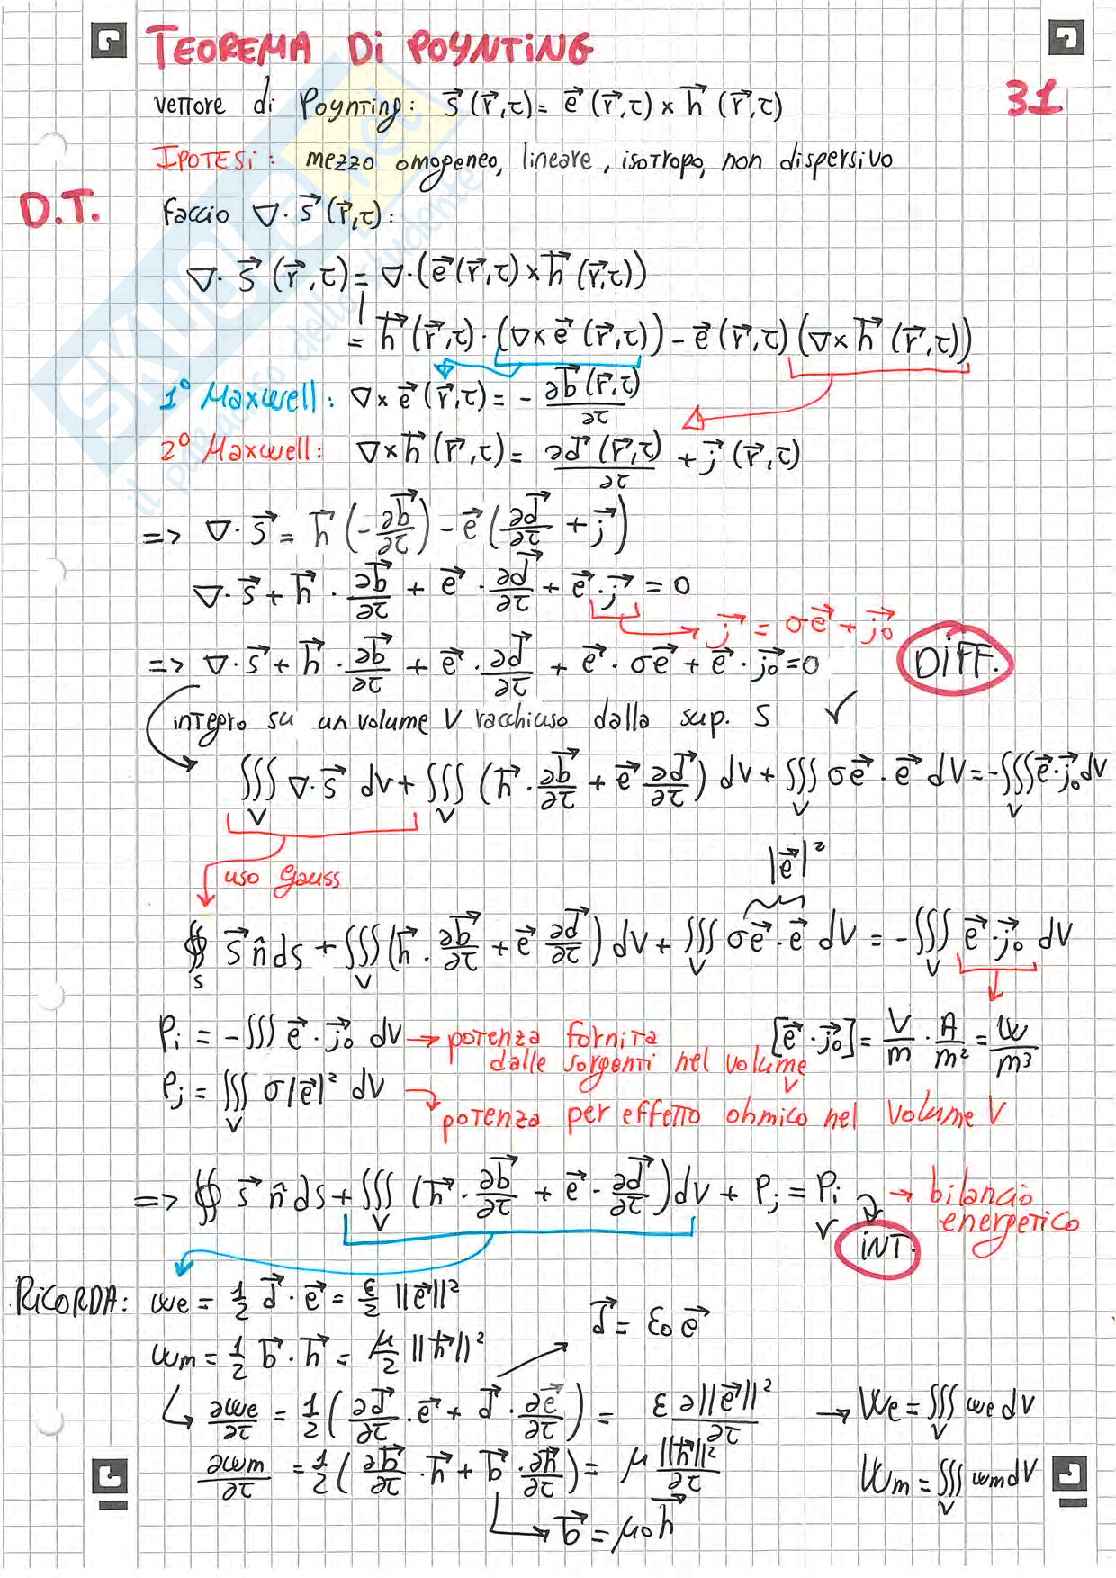 TEOREMA Di POYNTING
31
vettore di Poynting: s⃗(r⃗,τ) = e⃗(r⃗,τ) × h⃗(r⃗,τ)
IPOTESI: mezzo omogeneo, lineare, isotropo, non dispersivo
D.T.
faccio ∇·s⃗(r⃗,τ):
∇·s⃗(r⃗,τ) = ∇·(e⃗(r⃗,τ) × h⃗(r⃗,τ))
= h⃗(r⃗,τ)·(∇×e⃗(r⃗,τ)) − e⃗(r⃗,τ)(∇×h⃗(r⃗,τ))
1° Maxwell: ∇×e⃗(r⃗,τ) = − ∂b⃗(r⃗,τ)/∂τ
2° Maxwell: ∇×h⃗(r⃗,τ) = ∂d⃗(r⃗,τ)/∂τ + j⃗(r⃗,τ)
=> ∇·s⃗ = h⃗(−∂b⃗/∂τ) − e⃗(∂d⃗/∂τ + j⃗)
∇·s⃗ + h⃗·∂b⃗/∂τ + e⃗·∂d⃗/∂τ + e⃗·j⃗ = 0
j⃗ = σe⃗ + j⃗₀
=> ∇·s⃗ + h⃗·∂b⃗/∂τ + e⃗·∂d⃗/∂τ + e⃗·σe⃗ + e⃗·j⃗₀ = 0
DIFF.
integro su un volume V racchiuso dalla sup. S ✓
∭_V ∇·s⃗ dV + ∭_V (h⃗·∂b⃗/∂τ + e⃗ ∂d⃗/∂τ) dV + ∭_V σe⃗·e⃗ dV = −∭_V e⃗·j⃗₀ dV
uso Gauss
|e⃗|²
∯_S s⃗ n̂ ds + ∭_V (h⃗·∂b⃗/∂τ + e⃗ ∂d⃗/∂τ) dV + ∭_V σe⃗·e⃗ dV = −∭_V e⃗·j⃗₀ dV
Pi = −∭ e⃗·j⃗₀ dV → potenza fornita
dalle sorgenti nel volume V
[e⃗·j⃗₀] = V/m · A/m² = W/m³
Pj = ∭_V σ|e⃗|² dV
potenza per effetto ohmico nel volume V
=> ∯ s⃗ n̂ ds + ∭_V (h⃗·∂b⃗/∂τ + e⃗·∂d⃗/∂τ) dV + Pj = Pi ✓
→ bilancio
energetico
INT.
RICORDA: we = 1/2 d⃗·e⃗ = ε/2 ||e⃗||²
wm = 1/2 b⃗·h⃗ = μ/2 ||h⃗||²
d⃗ = ε₀ e⃗
∂we/∂τ = 1/2 (∂d⃗/∂τ·e⃗ + d⃗·∂e⃗/∂τ) = ε ∂||e⃗||²/∂τ → We = ∭_V we dV
∂wm/∂τ = 1/2 (∂b⃗/∂τ·h⃗ + b⃗·∂h⃗/∂τ) = μ ||h⃗||²/∂τ
Wm = ∭_V wm dV
b⃗ = μ₀ h⃗
SKUOLA.net